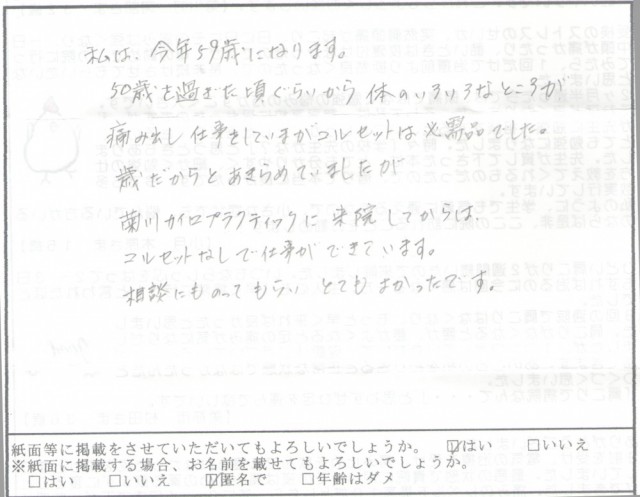 私は、今年59歳になります。
50歳を過ぎた頃ぐらいから 体のいろいろなところが
痛み出し 仕事をしていますがコルセットは必需品でした。
歳だからとあきらめていましたが
菊川カイロプラクティックに 来院してからは、
コルセットなしで仕事ができています。
相談にものってもらい とてもよかったです。
紙面等に掲載をさせていただいてもよろしいでしょうか。 ☑はい □いいえ
※紙面に掲載する場合、お名前を載せてもよろしいでしょうか。
□はい □いいえ ☑匿名で □年齢はダメ